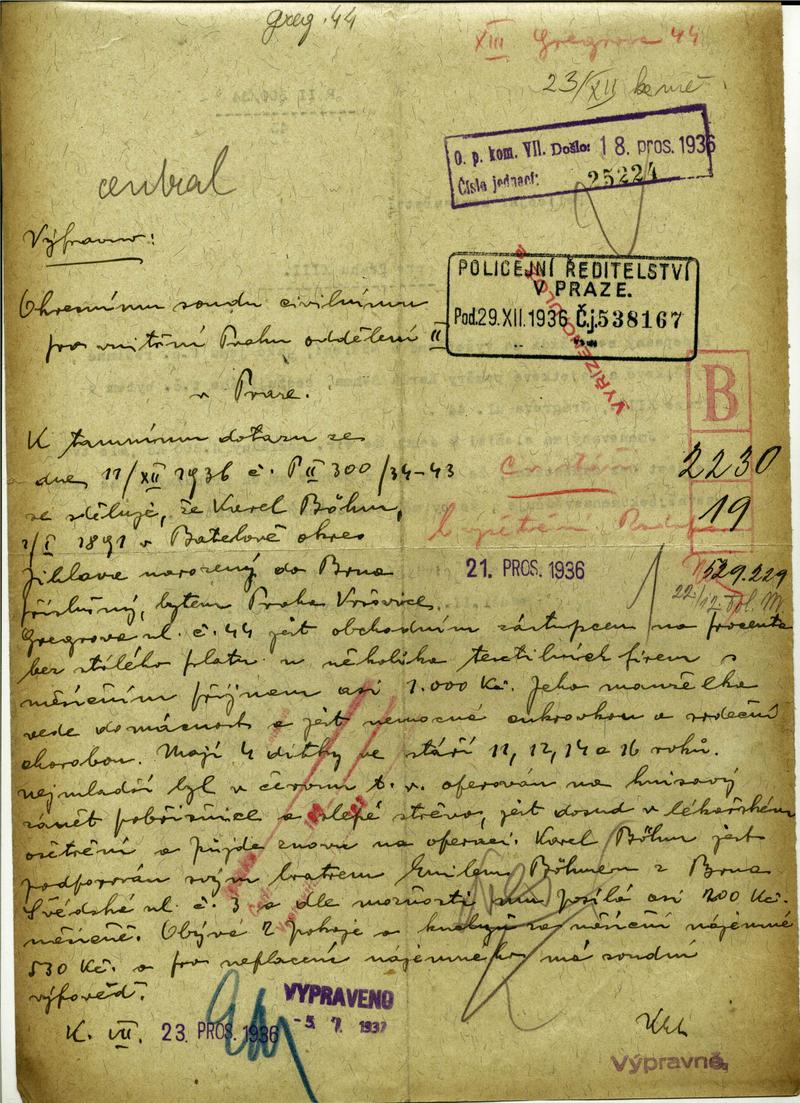 greg. 44
XIII Gregrova 44
23/XII
O. p. kom. VII. Došlo: 18. pros. 1936
Číslo jednací: 25224
central
Výpravno:
POLICEJNÍ ŘEDITELSTVÍ
V PRAZE.
Pod. 29. XII. 1936 Č.j. 538167
VYŘÍZENO
Okresnímu soudu civilnímu
pro vnitřní Prahu oddělení II
v Praze.
B
2230
19
K tamnímu dotazu ze
dne 11/XII 1936 č. P II 300/34-43
se sděluje, že Karel Böhm,
1891 v Batelově okres
Jihlava narozený do Brna
příslušný, bytem Praha Vršovice,
21. PROS. 1936
529.229
22/12
Gregrova ul. č. 44 jest obchodním zástupcem na procenta
bez stálého platu u několika textilních firem s
měsíčním příjmem asi 1.000 Kč. Jeho manželka
vede domácnost a jest nemocná cukrovkou a srdeční
chorobou. Mají 4 dítky ve stáří 11, 12, 14 a 16 roků.
nejmladší byl v červnu t. r. operován na hnisavý
zánět pobřišnice a slepé střevo, jest dosud v lékařském
ošetření a půjde znovu na operaci. Karel Böhm jest
podporován svým bratrem Emilem Böhmem z Brna
Švédská ul. č. 3 a dle možnosti mu posílá asi 200 Kč.
měsíčně. Obývá 2 pokoje a kuchyň za měsíční nájemné
530 Kč. a pro neplacení nájemného má soudní
výpověď.
K. VII. 23. PROS. 1936
VYPRAVENO
-5. 7. 1937
Výpravně